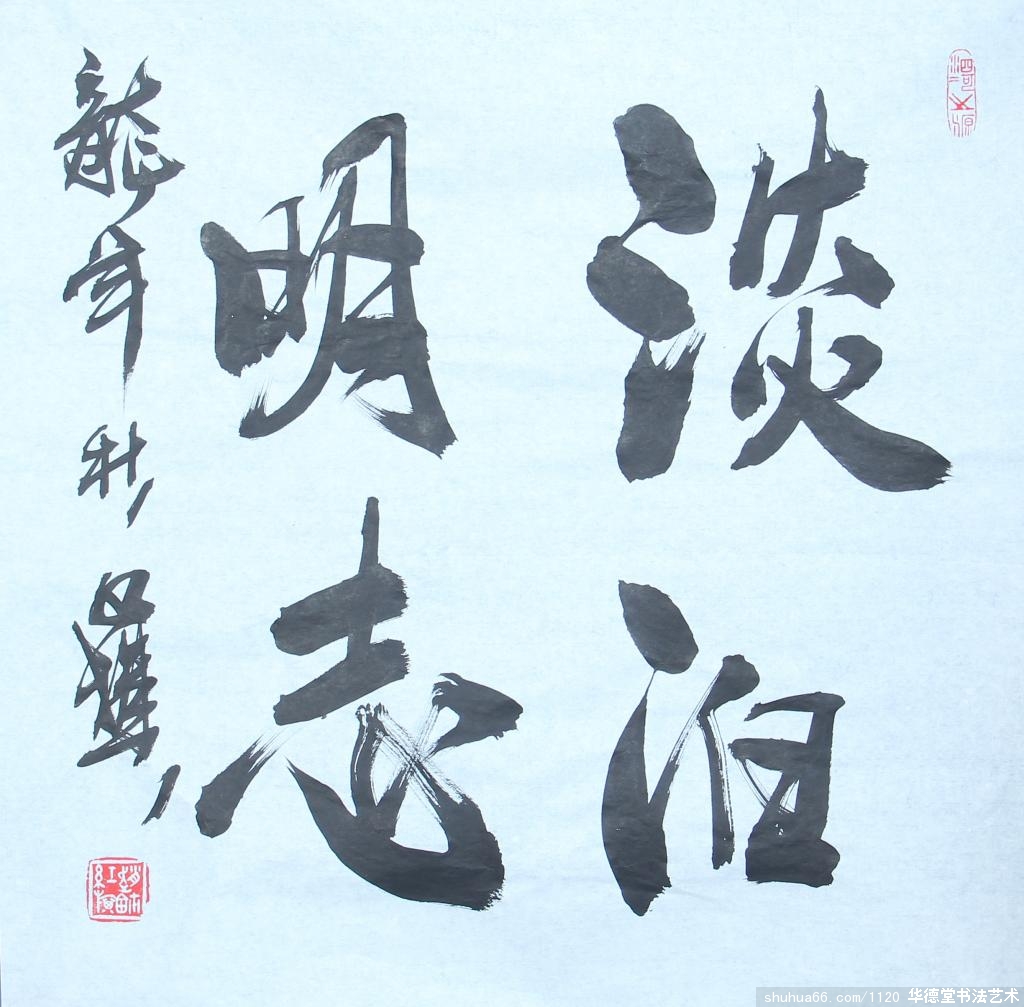 淡泊
明志
龍年
shuhua66.com/1120 华德堂书法艺术